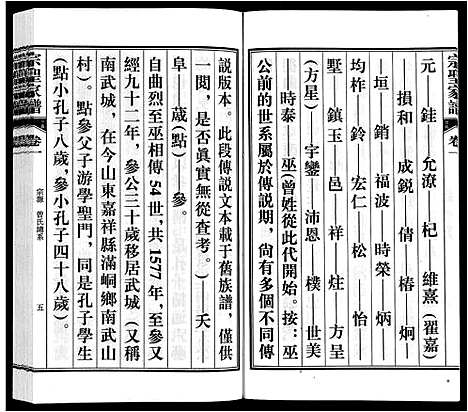 宗聖家譜
卷一
元——銈——允潦——杞——維熹（翟嘉）
——損和——成銳——倩——椿——炯
——垣——銷——福波——時榮——炳
均柞——鈴——宏仁——松——怡
墅——鎮玉——邑——祥——炷——方
（方星）——宇鑾——沛恩——樸——世美
——時泰——巫（曾姓從此代開始。按：巫
公前的世系屬於傳說期，尚有多個不同傳
說版本。此段傳說文本載于舊族譜，僅供
一閱，是否眞實無從查考。）——夭——
阜——蒧（點）——參。
自曲烈至巫相傳54世，共1577年，至參又
經九十二年，參公三十歲移居武城（又稱
南武城，在今山東嘉祥縣滿峒鄉南武山
村）。點參父子游學聖門，同是孔子學生
（點小孔子八歲，參小孔子四十八歲）。
宗聖家譜
卷一
宗聯 曾氏總系
五